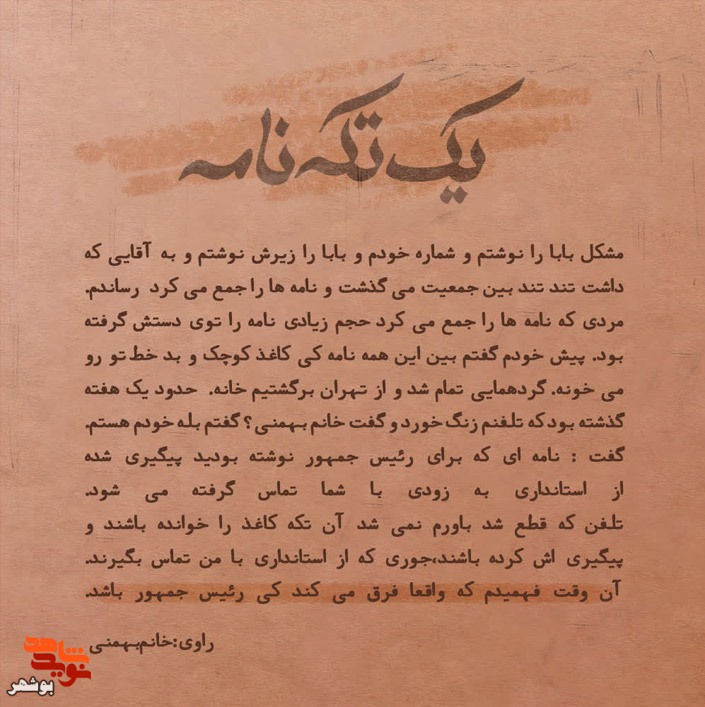 یک تکه نامه
مشکل بابا را نوشتم و شماره خودم و بابا را زیرش نوشتم و به آقایی که
داشت تند تند بین جمعیت می گذشت و نامه ها را جمع می کرد رساندم.
مردی که نامه ها را جمع می کرد حجم زیادی نامه را توی دستش گرفته
بود. پیش خودم گفتم بین این همه نامه کی کاغذ کوچک و بد خط تو رو
می خونه. گردهمایی تمام شد و از تهران برگشتیم خانه. حدود یک هفته
گذشته بود که تلفنم زنگ خورد و گفت خانم بهمنی؟ گفتم بله خودم هستم.
گفت : نامه ای که برای رئیس جمهور نوشته بودید پیگیری شده
از استانداری به زودی با شما تماس گرفته می شود.
تلفن که قطع شد باورم نمی شد آن تکه کاغذ را خوانده باشند و
پیگیری اش کرده باشند،جوری که از استانداری با من تماس بگیرند.
آن وقت فهمیدم که واقعا فرق می کند کی رئیس جمهور باشد.
راوی:خانم‌بهمنی
نوید شاهد
بوشهر